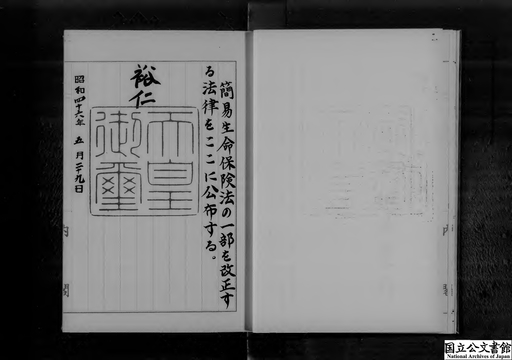 簡易生命保険法の一部を改正す
る法律をここに公布する。
裕仁
天皇
御璽
昭和四十六年五月二十九日
内閣
国立公文書館
National Archives of Japan